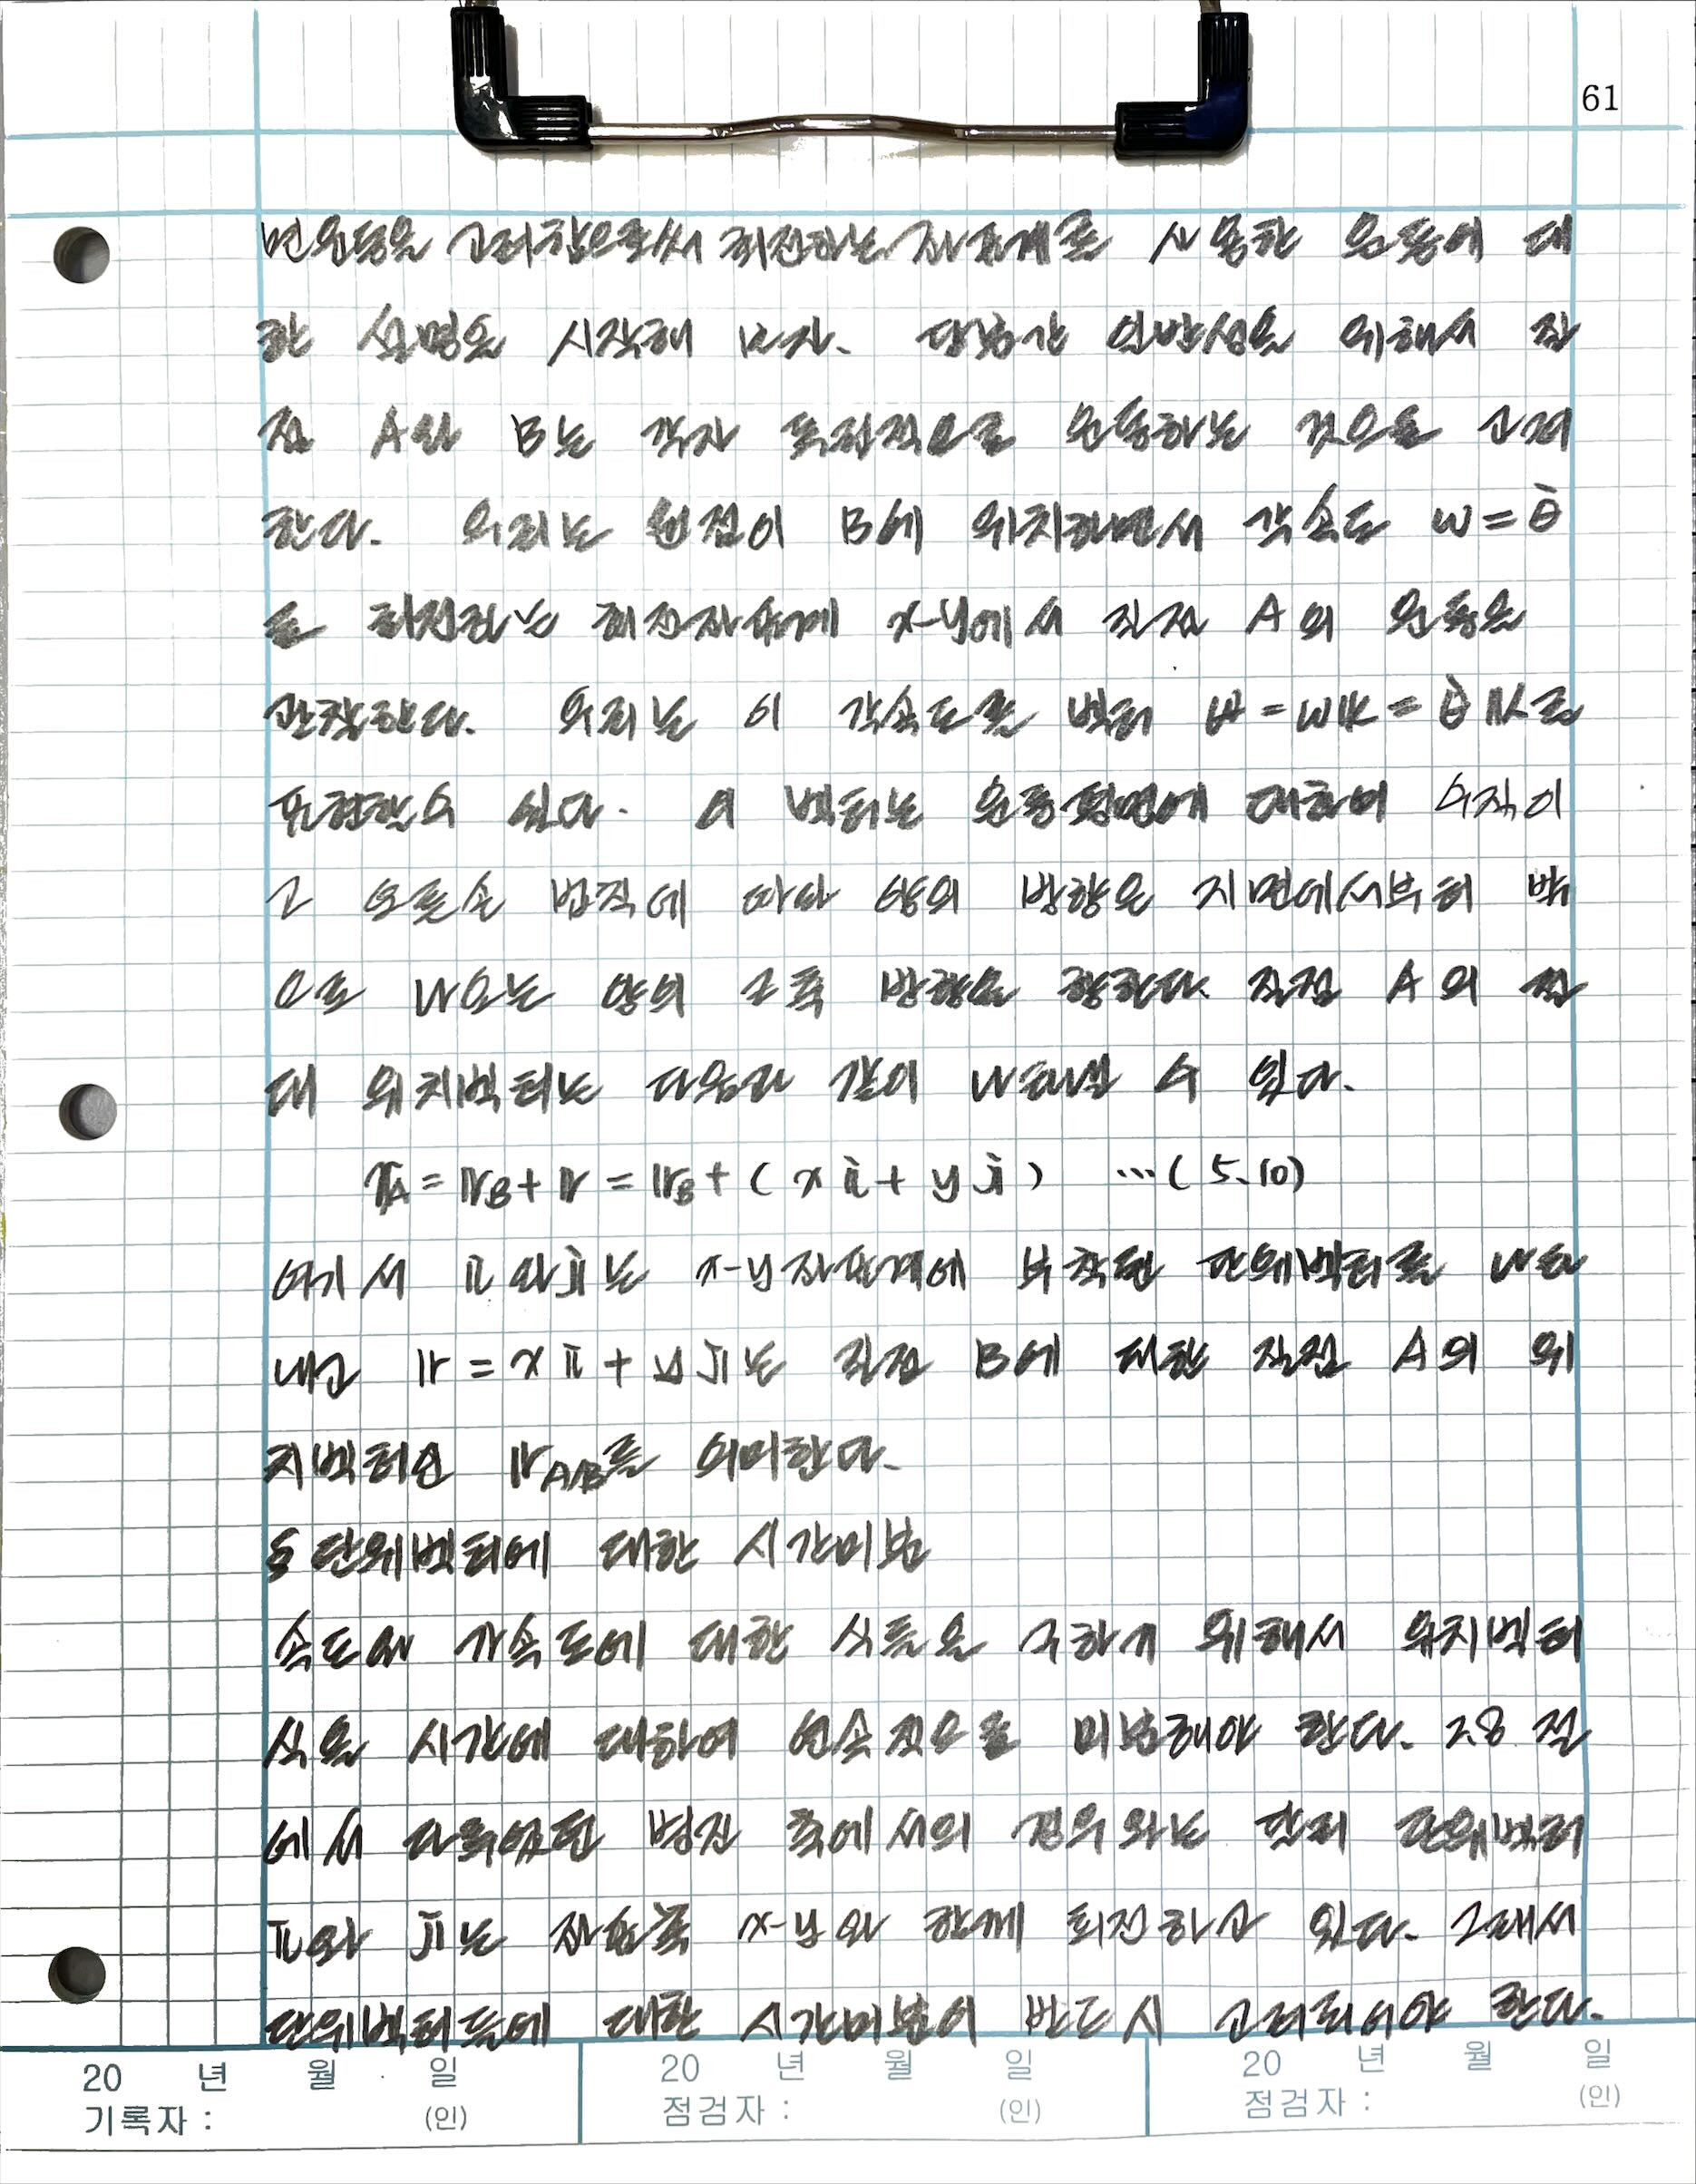 61
면운동을 고려함으로써 회전하는 좌표계를 사용한 운동에 대
한 설명을 시작해 보자. 당분간 일반성을 위해서 질
점 A와 B는 각자 독립적으로 운동하는 것으로 고려
한다. 우리는 원점이 B에 위치하면서 각속도 ω = θ̇
로 회전하는 회전좌표계 x-y에서 질점 A의 운동을
관찰한다. 우리는 이 각속도를 벡터 ω = ωk = θ̇k로
표현할 수 있다. 이 벡터는 운동평면에 대하여 수직이
고 오른손 법칙에 따라 양의 방향은 지면에서부터 밖
으로 나오는 양의 z축 방향을 향한다. 질점 A의 절
대 위치벡터는 다음과 같이 나타낼 수 있다.
r_A = r_B + r = r_B + ( x i + y j ) ...( 5.10)
여기서 i와 j는 x-y좌표계에 부착된 단위벡터를 나타
내고 r = x i + y j는 질점 B에 대한 질점 A의 위
치벡터인 r_A/B를 의미한다.
§ 단위벡터에 대한 시간미분
속도와 가속도에 대한 식들을 구하기 위해서 위치벡터
식을 시간에 대하여 연속적으로 미분해야 한다. 2.8 절
에서 다뤄었던 병진 축에서의 경우와는 달리 단위벡터
i와 j는 좌표축 x-y와 함께 회전하고 있다. 그래서
단위벡터들에 대한 시간미분이 반드시 고려되어야 한다.
20 년 월 일 20 년 월 일 20 년 월 일
기록자 : (인) 점검자 : (인) 점검자 : (인)